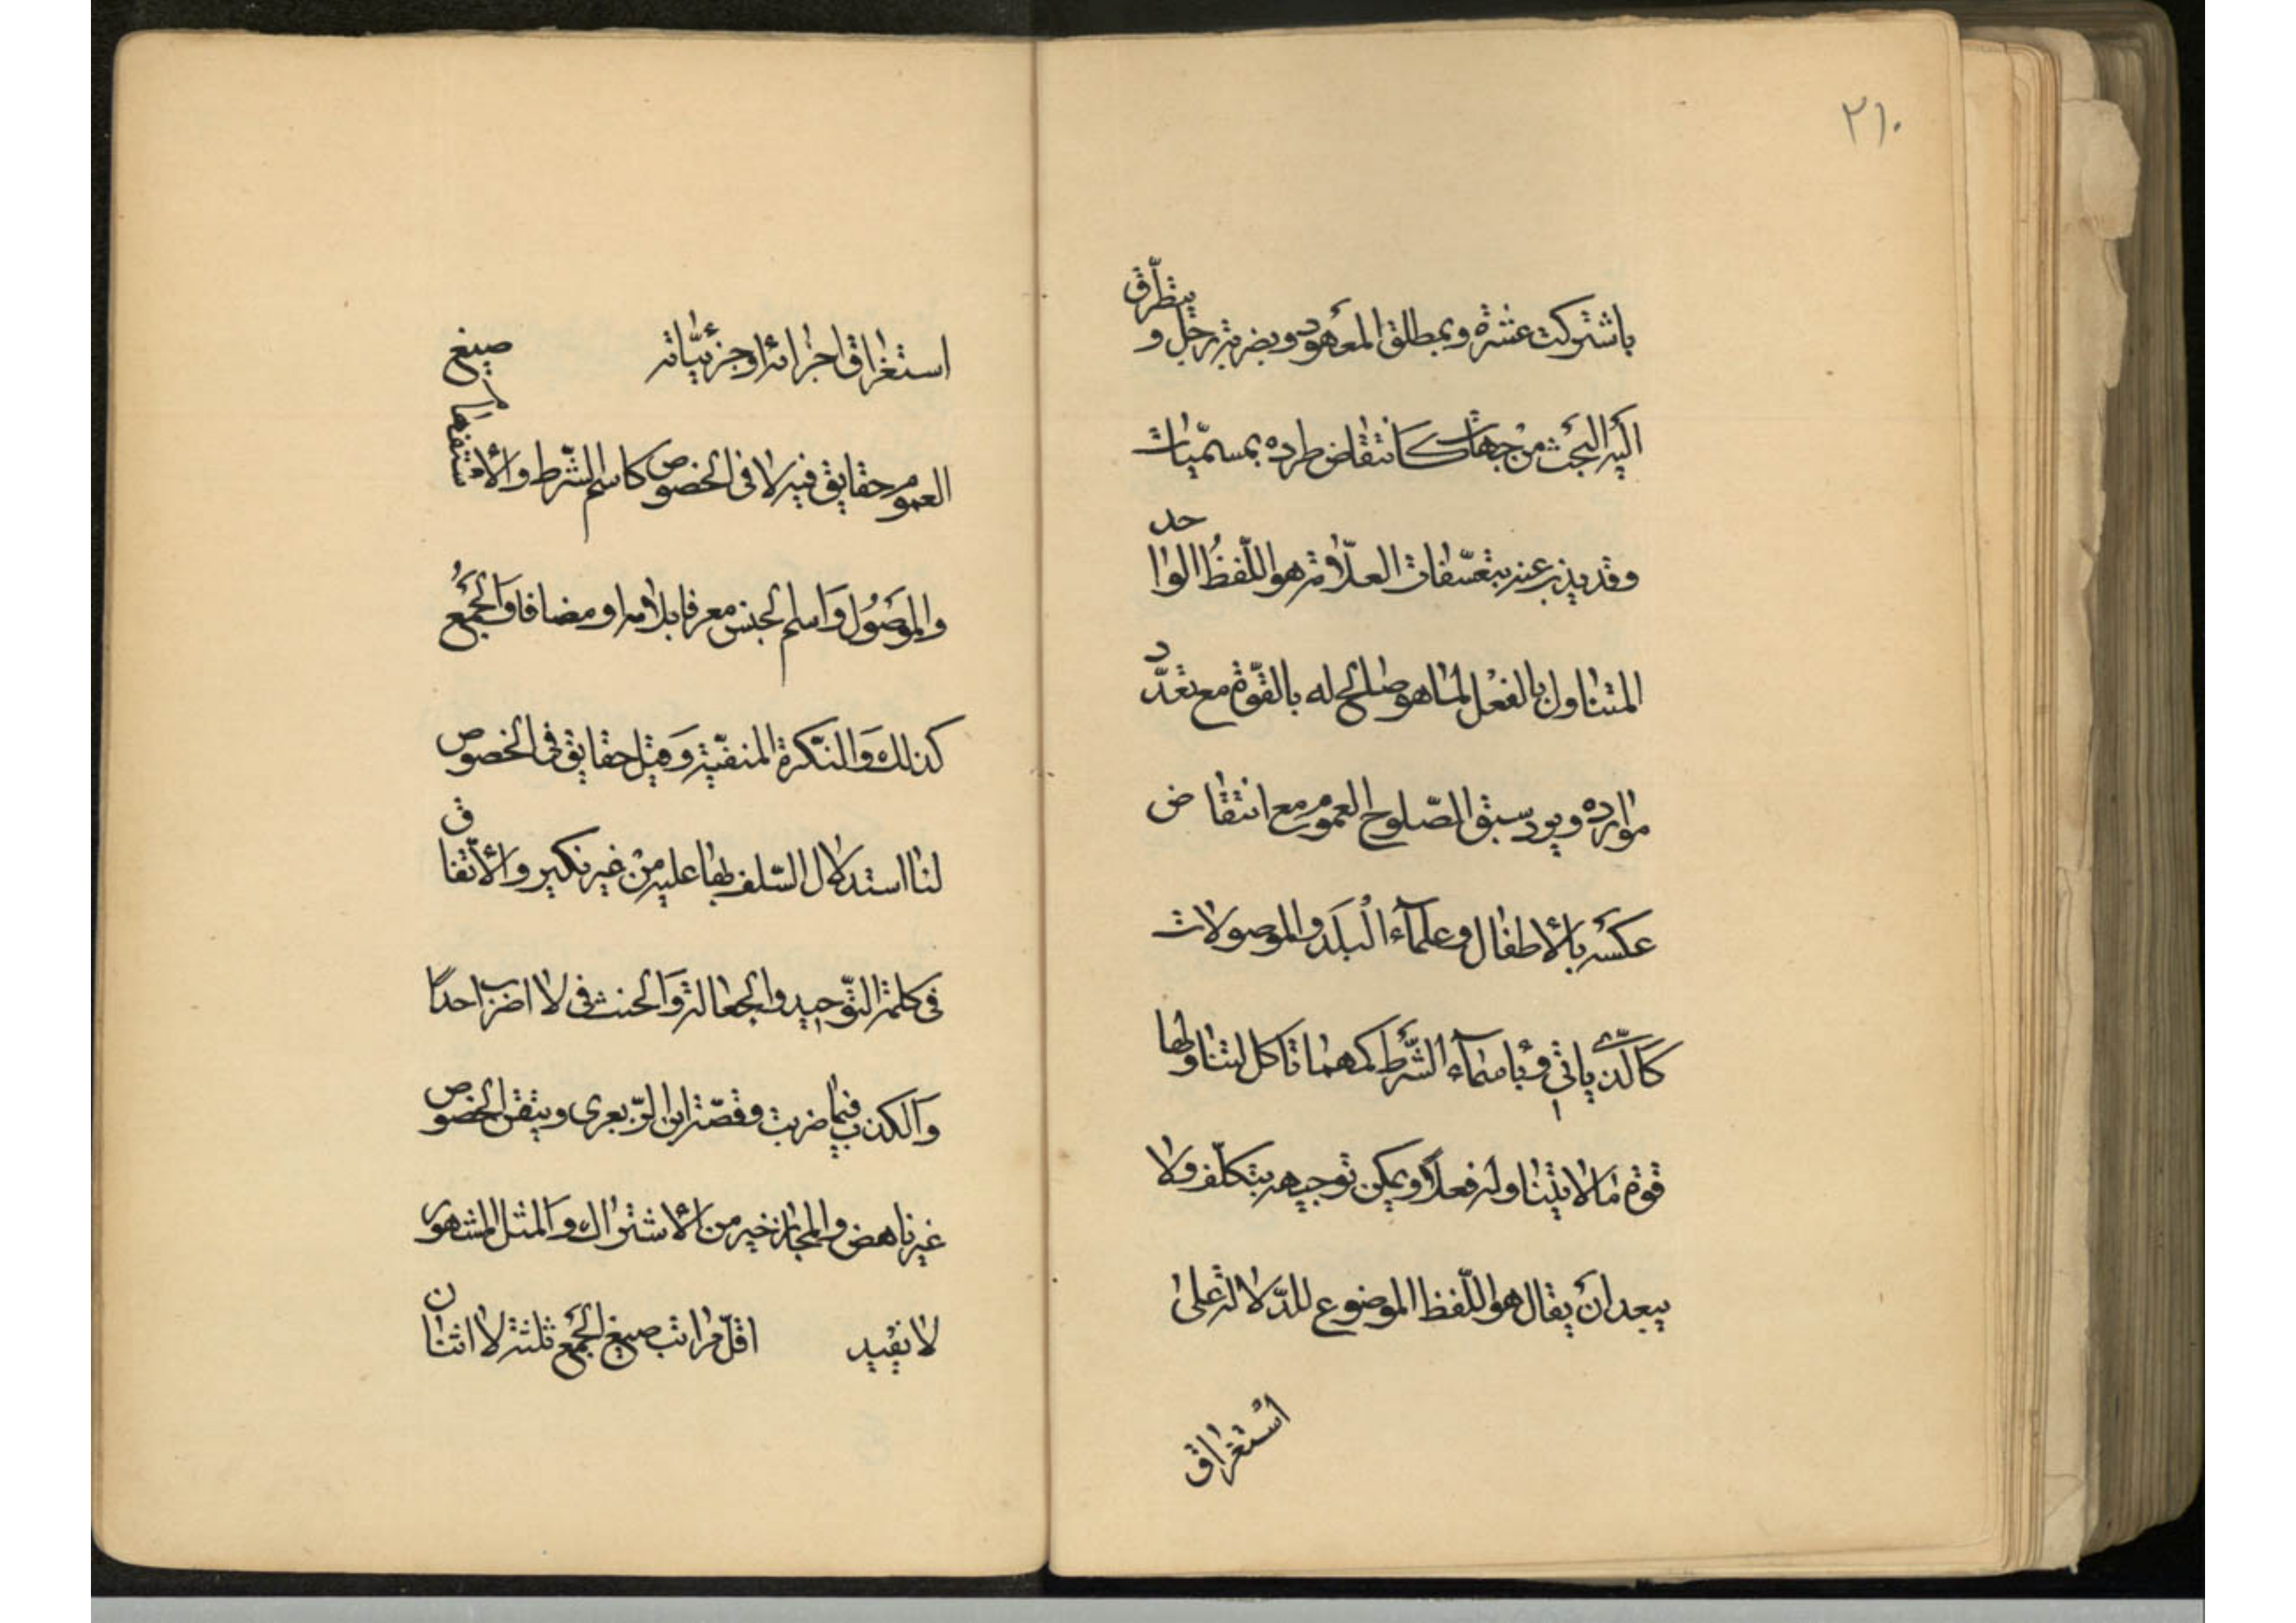 ٢١٠
باشتركت عشرة وبمطلق المعهود وبضربته رجل و يتطرّق
اليه البحث من جهات كانتقاض طرده بمسمّيات
وقد يذب عنه بتعسّفات العلّامة هو اللّفظُ الواحد
المتناول بالفعْل لما هو صالح له بالقوّة مع تعدّد
موارده ويرد سبق الصّلوح العموم مع انتقاض
عكسه بالأطفال وعلمآء الْبلَد والموصولات
كالّذى ياتى وبأسمآء الشّرط كمهما تاكل لتناولها
قوّة ما لا يتناوله فعلًا ويمكن توجيهه بتكلّف ولا
يبعد ان يقال هو اللّفظ الموضوع للدّلالة على
استغراق
استغراق اجزائه او جزئيّاته صيغ
العموم حقايق فيه لا فى الخصوص كاسم الشّرط والأستفهام
والموصُول وَاسم الجنس معرفا بلام او مضافا وَالجمْع
كذلك وَالنّكرة المنفيّة وَقيل حقايق فى الخصوص
لنا استدلال السّلف بها عليه منْ غير نكير والأتّفاق
فى كلمة التّوحيد والجعالة وَالحنث فى لا اضرب احدًا
وَالكذب فيما ضربت وقصّة ابن الزّبعرى وتيقن الخصوص
غير ناهض والمجاز خير من الأشتراك وَالمثل المشهور
لا يفيد اقلّ مراتب صيغ الجمْع ثلثة لا اثنان